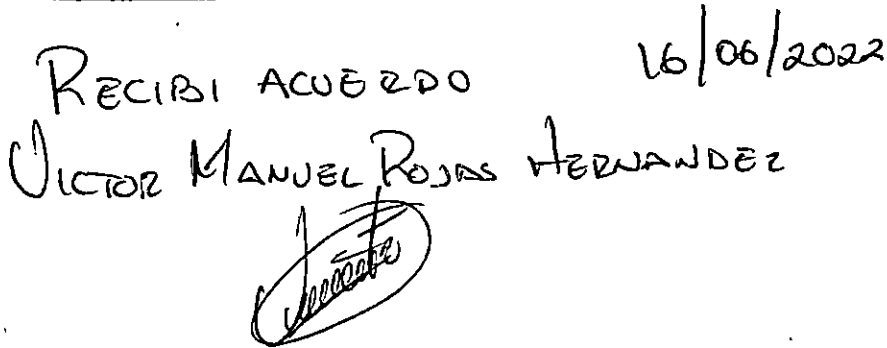 RECIBI ACUERDO 16/06/2022
VICTOR MANUEL ROJAS HERNANDEZ